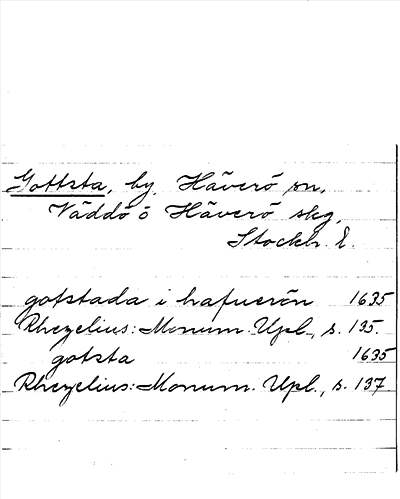 Gottsta, by, Häverö sn,
Väddö o Häverö skg,
Stockh. l.
gotstada i hafuerön 1635
Rhezelius: Monum. Upl., s. 135.
gotsta 1635
Rhezelius: Monum. Upl., s. 137